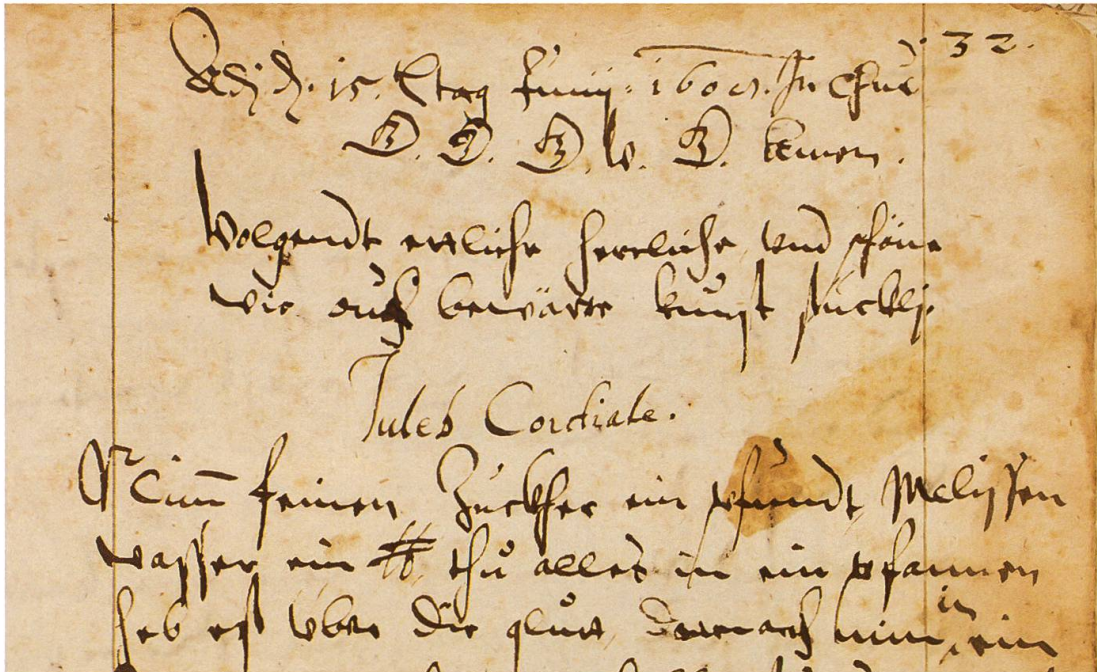 32.
Adj. 15. tag Junij. 160 In Chur
G. G. G. W. G. kemen.
Volgendt ettliche herrliche vnd schöne
wie auch bewärte kunst stuckli.
Juleb Cordiale.
Nim feinen Zuckher ein pfundt, Melissen
wasser ein ℔ thů alles in ein pfannen
heb eß vber die glutt, darnach nim in ein